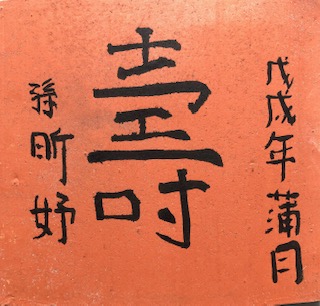 戊戌年蒲月
壽
孫昕妤